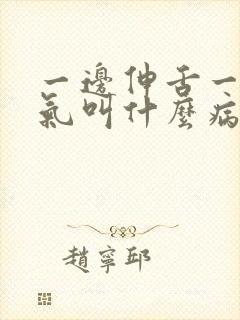 一邊伸舌一
氣叫什麼病
趙寧邱